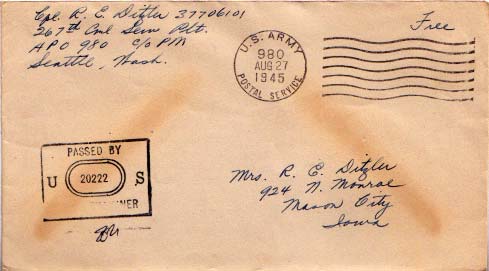 Cpl. R. E. Ditzler 37706101
267th Cml Serv Plt.
APO 980 c/o PM
Seattle, Wash.
U.S. ARMY
980
AUG 27
1945
POSTAL SERVICE
Free
PASSED BY
U 20222 S
Mrs. R. E. Ditzler
924 N. Monroe
Mason City
Iowa